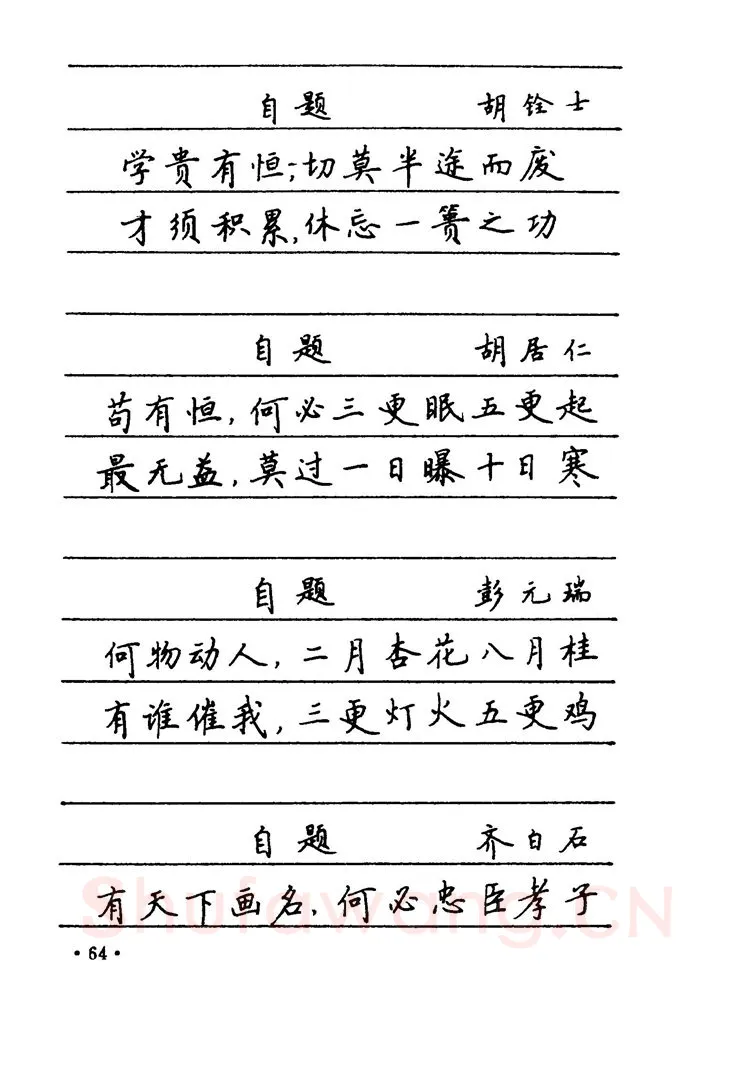 自题 胡铨士
学贵有恒;切莫半途而废
才须积累,休忘一篑之功
自题 胡居仁
苟有恒,何必三更眠五更起
最无益,莫过一日曝十日寒
自题 彭元瑞
何物动人,二月杏花八月桂
有谁催我,三更灯火五更鸡
自题 齐白石
有天下画名,何必忠臣孝子
Shufawang.CN
·64·